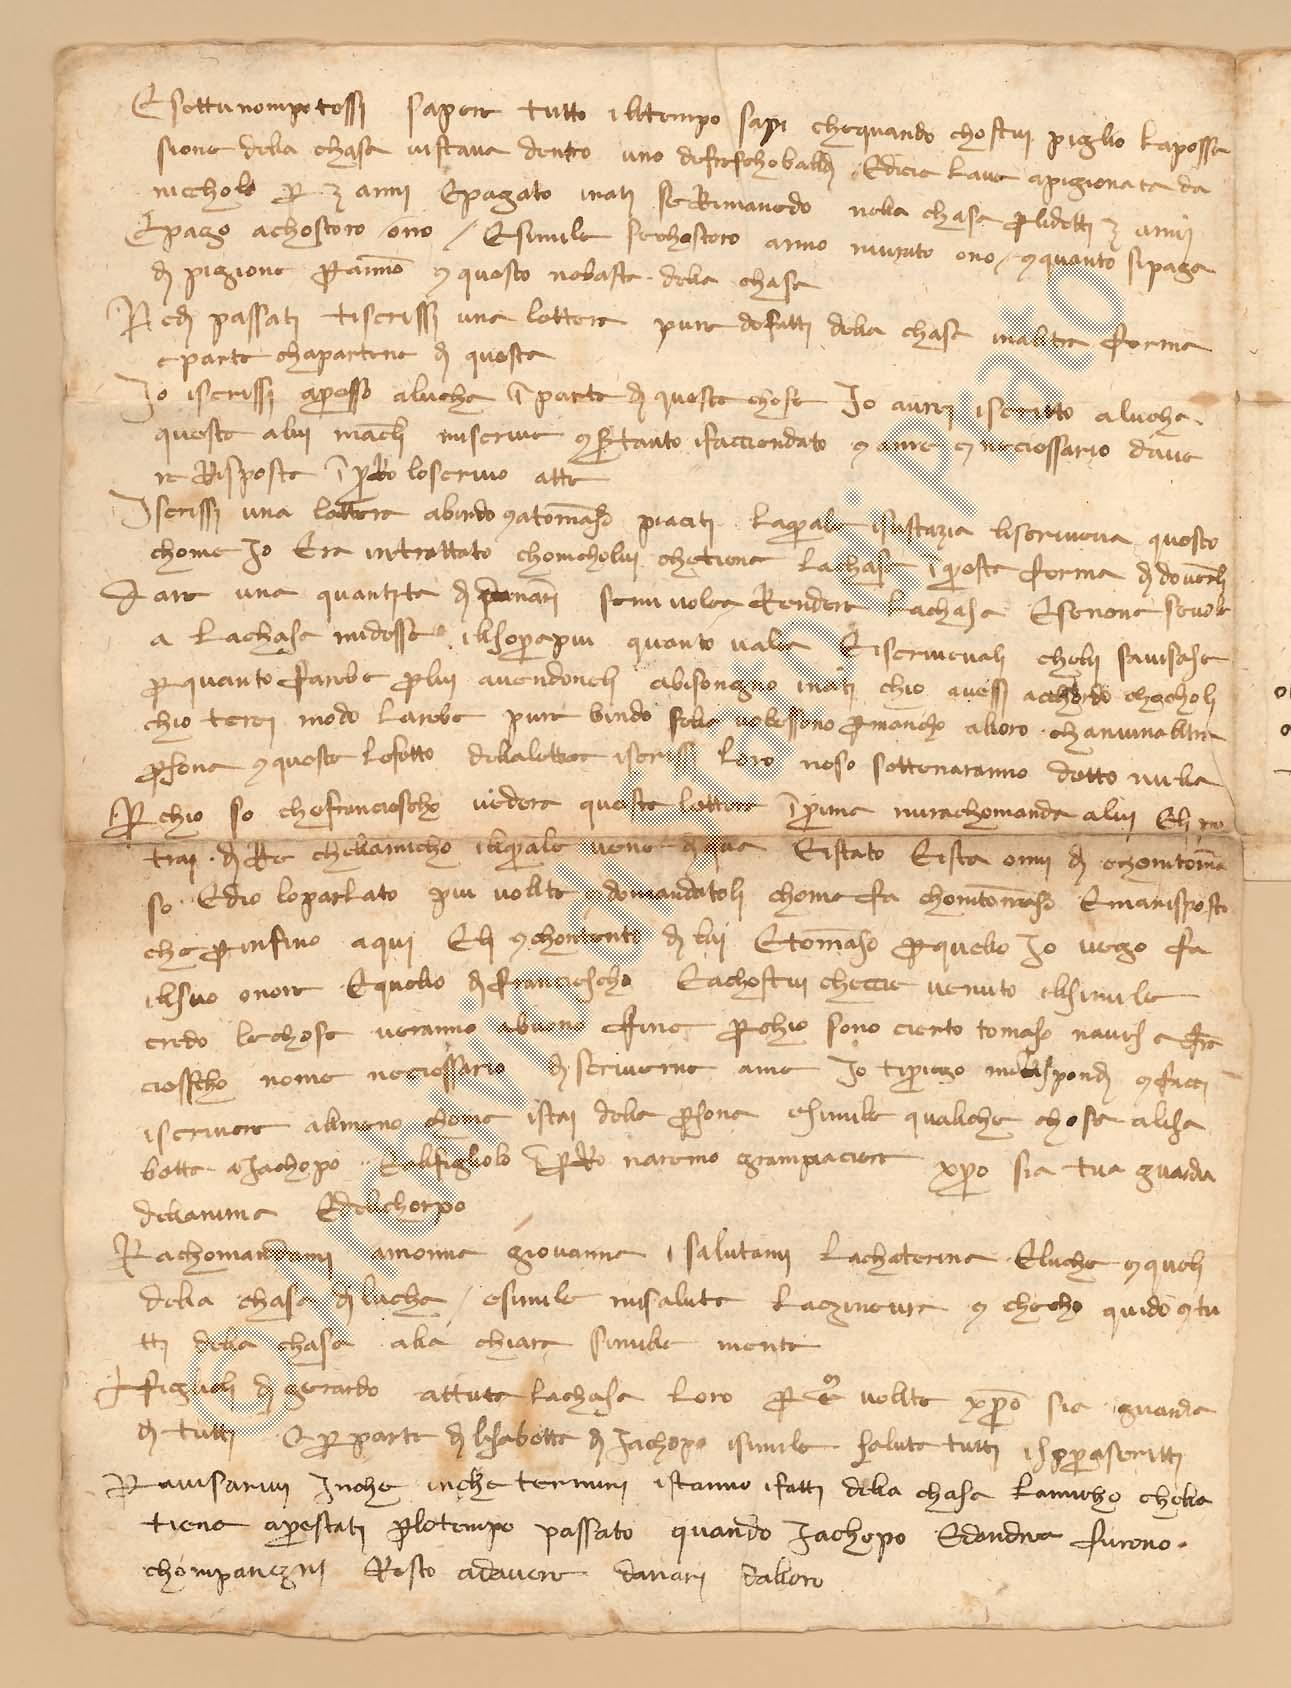 E settu nompotessi sapere tutto illtempo sapi chequando chostui piglio laposse
sione dela chasa vistava dentro uno defreschobaldi Edicie lave apigionata da
nicholo p 3 anni Epagato inati serimanedo nela chasa plidetti 3 anni
Epago achostoro ono / Esimile sechostoro anno murato ono / e quanto sipaga
di pigione panno e questo nobasta dela chasa
Nedi passati tiscrissi una lettera pure defatti dela chasa inaltra forma
eparte chapartene di questa
Io iscrissi apresso alucha i parte di queste chose Io aurei iscritto alucha
questa alui manchi miscrive e tanto ifacciendato e ame e neciessario dave
re Risposta i po loscrivo atte
Iscrissi una lettera abindo e atomaso piaciti laquale isustazia liscriveva questo
chome Io Era intrattato chomcholui chetiene lachasa i questa forma di doverli
dare una quantita di danari semi volea Rendere lachasa Esenone sevole
a lachasa midesse ilsoprapiu quanto vale Eiscrivevali cheli savisase
p quanto farebe plui avendoneli abisongno inati chio avessi achordo checholi
chio terei modo larebe pure bindo sela volessono pmancho alloro chaniunaltra
psona e questa lefetto dellalettera iscrissi loro noso settenaranno detto nulla
Pchio so chefranciescho vedera questa lettera i prima mirachomanda alui Eli no
trai di Re chellamicho ilquale vene di qua Eistato Eista onni di chomtoma
so Edio loparlato piu vollte e domandatoli chome fa chomtomaso Emarisposto
che pinfino aqui Eli e chontento di lui Etomaso pquello Io vegio fa
ilsuo onore Equello di francescho Eachostui checcie venuto ilsimile
credo lechose veranno abuono fine Pchio sono cierto tomaso navisa fra
ciescho nome neciessario di scriverne ame Io tipriego merisspondi e facci
iscrivere allmeno chome istai dela psona esimile qualche chosa alisa
betta e Jachopo Ealfigliolo i po naremo grampiacere xpo sia tua guarda
dellanima Edelchorpo
Rachomandami amonna giovanna e salutami lachaterina Elucha e queli
dela chasa di lucha / esimile misaluta laginevra e checho quido e tu
tti dela chasa ala chiara simile mente
Ifigliuoli di gerardo attuta lachasa loro p vollte xpo sia guarda
di tutti E p parte di lisabetta di Jachopo isimile saluta tutti isoprascritti
Pavisarvi Inche inche termini istanno ifatti dela chasa lamicho chella
tiene aprestati pletempo passato quando Jachopo Edandrea furono
chompangni Resto adavere danari dalloro